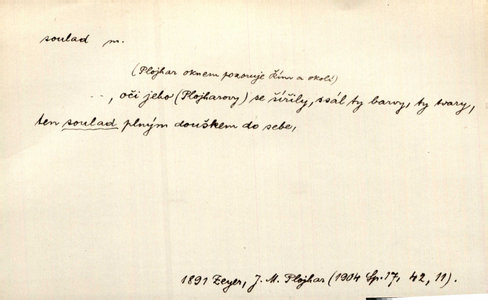 soulad m.
(Plojhar oknem pozoruje Řím a okolí)
.., oči jeho (Plojharovy) se šířily, ssál ty barvy, ty tvary,
ten soulad plným douškem do sebe,
1891 Zeyer, J. M. Plojhar (1904 Sp. 17, 42, 11).